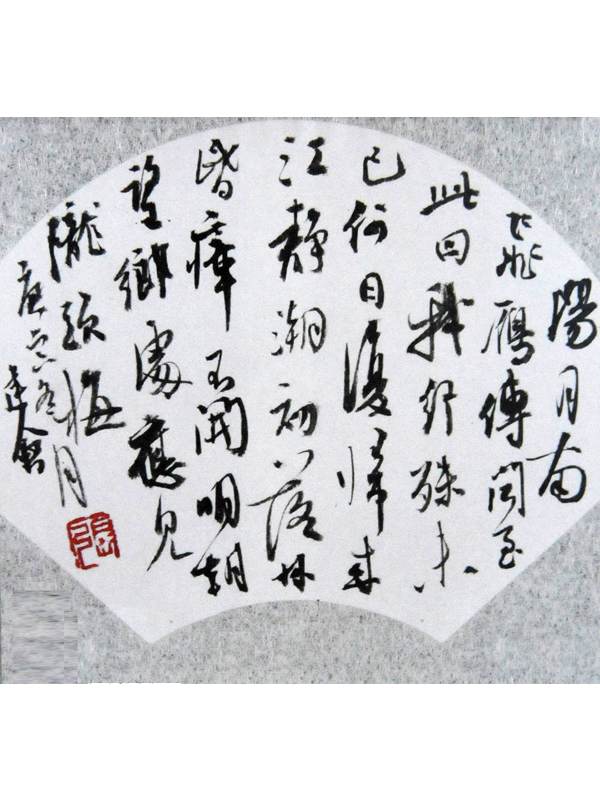 陽月南
飛鴈傳聞至
此回我行殊未
已何日復歸來
江靜潮初落林
昏瘴不開明朝
望鄉處應見
隴頭梅月
庚冬